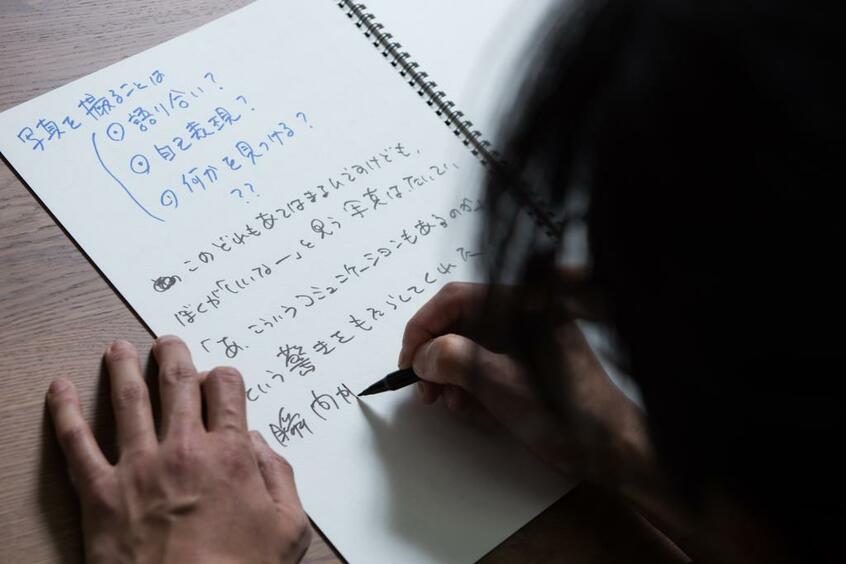 写真を撮ることは
語り合い?
自己表現?
何かを見つける?
??
このどれもあてはまるんですけども、
ぼくが「いいなー」と思う写真は、だいたい、
「あ、こういうコミュニケーションもあるのか
という驚きをもたらしてくれた